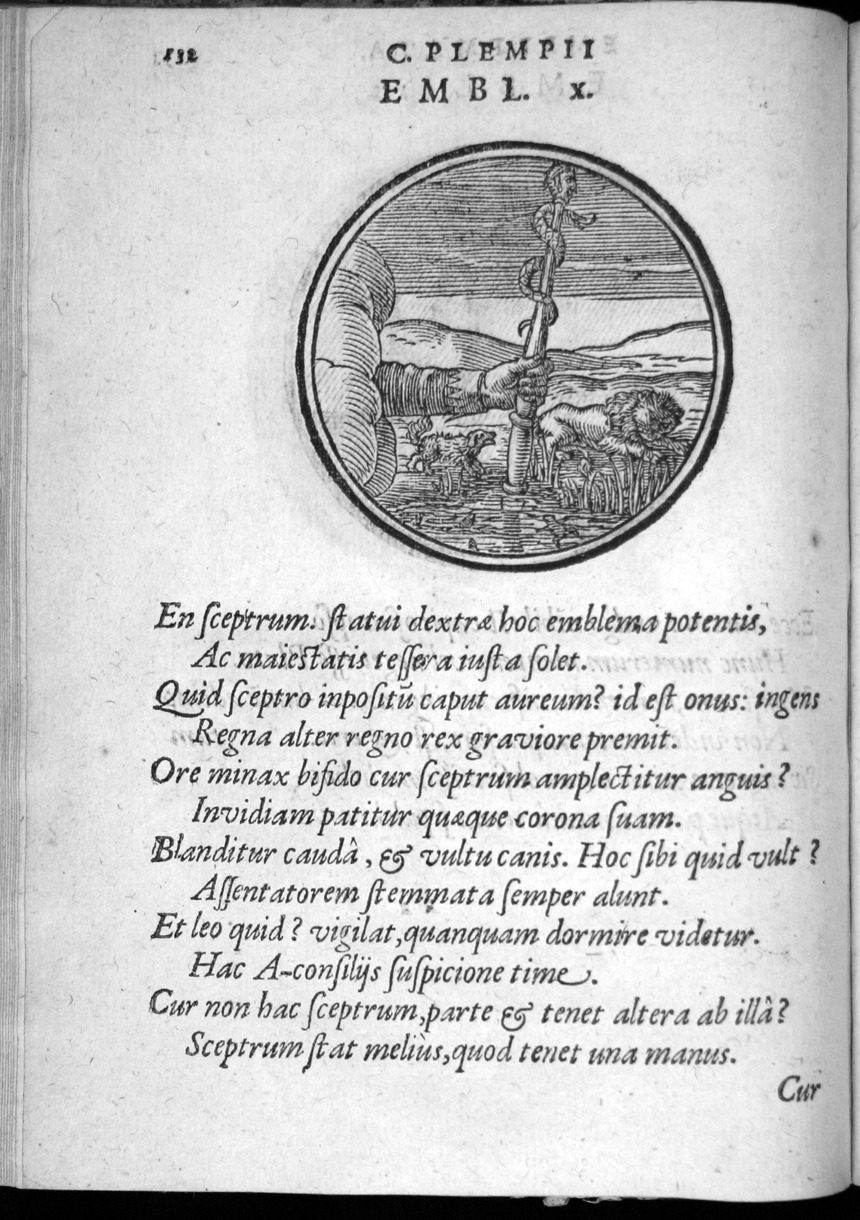 132
C. PLEMPII
EMBL. X.
En ſceptrum. ſtatui dextræ hoc emblema potentis,
Ac maieſtatis teſſera iuſta ſolet.
Quid ſceptro inpoſitū caput aureum? id eſt onus: ingens
Regna alter regno rex graviore premit.
Ore minax bifido cur ſceptrum amplectitur anguis?
Invidiam patitur quæque corona ſuam.
Blanditur caudâ, & vultu canis. Hoc ſibi quid vult?
Aſſentatorem ſtemmata ſemper alunt.
Et leo quid? vigilat, quanquam dormire videtur.
Hac A-conſilijs ſuſpicione time.
Cur non hac ſceptrum, parte & tenet altera ab illâ?
Sceptrum ſtat meliùs, quod tenet una manus.
Cur